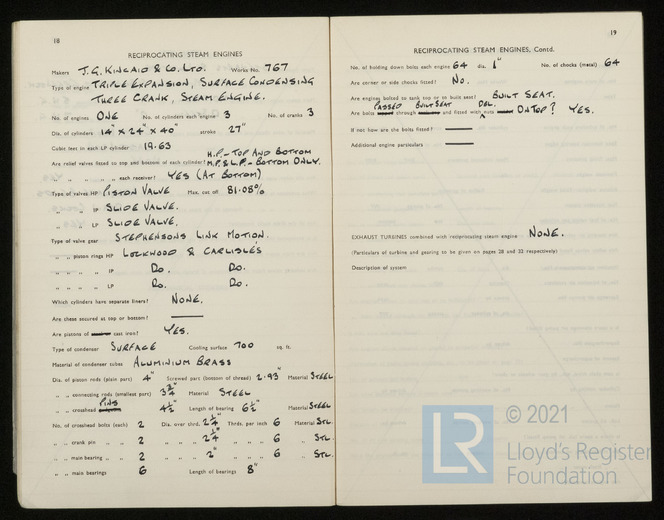 18
RECIPROCATING STEAM ENGINES
Makers J. G. KINCAID & CO. LTD. Works No. 767
Type of engine TRIPLE EXPANSION, SURFACE CONDENSING
THREE CRANK, STEAM ENGINE.
No. of engines ONE No. of cylinders each engine 3 No. of cranks 3
Dia. of cylinders 14" X 24" X 40" stroke 27"
Cubic feet in each LP cylinder 19.63
H.P. - TOP AND BOTTOM
Are relief valves fitted to top and bottom of each cylinder? M.P. & L.P. - BOTTOM ONLY.
" " " " each receiver? YES (AT BOTTOM)
Type of valves HP PISTON VALVE Max. cut off 81.08%
" " IP SLIDE VALVE.
" " LP SLIDE VALVE.
Type of valve gear STEPHENSONS LINK MOTION.
" " piston rings HP LOCKWOOD & CARLISLES
" " " " IP DO. DO.
" " " " LP DO. DO.
Which cylinders have separate liners? NONE.
Are these secured at top or bottom? ———
Are pistons of cast iron? YES.
Type of condenser SURFACE Cooling surface 700 sq. ft.
Material of condenser tubes ALUMINIUM BRASS
Dia. of piston rods (plain part) 4" Screwed part (bottom of thread) 2.93" Material STEEL
" " connecting rods (smallest part) 3¾" Material STEEL
PINS
" " crosshead 4½" Length of bearing 6½" Material STEEL
No. of crosshead bolts (each) 2 Dia. over thrd. 2¼" Thrds. per inch 6 Material STL.
" " crank pin " " 2 " " " 2¼" " " " 6 " STL.
" " main bearing " " 2 " " " 2" " " " 6 " STL.
" " main bearings 6 Length of bearings 8"
19
RECIPROCATING STEAM ENGINES, Contd.
No. of holding down bolts each engine 64 dia. 1" No. of chocks (metal) 64
Are corner or side chocks fitted? NO.
Are engines bolted to tank top or to built seat? BUILT SEAT.
PASSED BUILT SEAT DBL.
Are bolts through and fitted with nuts ON TOP? YES.
If not how are the bolts fitted? ———
Additional engine particulars ———
EXHAUST TURBINES combined with reciprocating steam engine NONE.
(Particulars of turbine and gearing to be given on pages 28 and 32 respectively)
Description of system
LR
© 2021
Lloyd's Register
Foundation